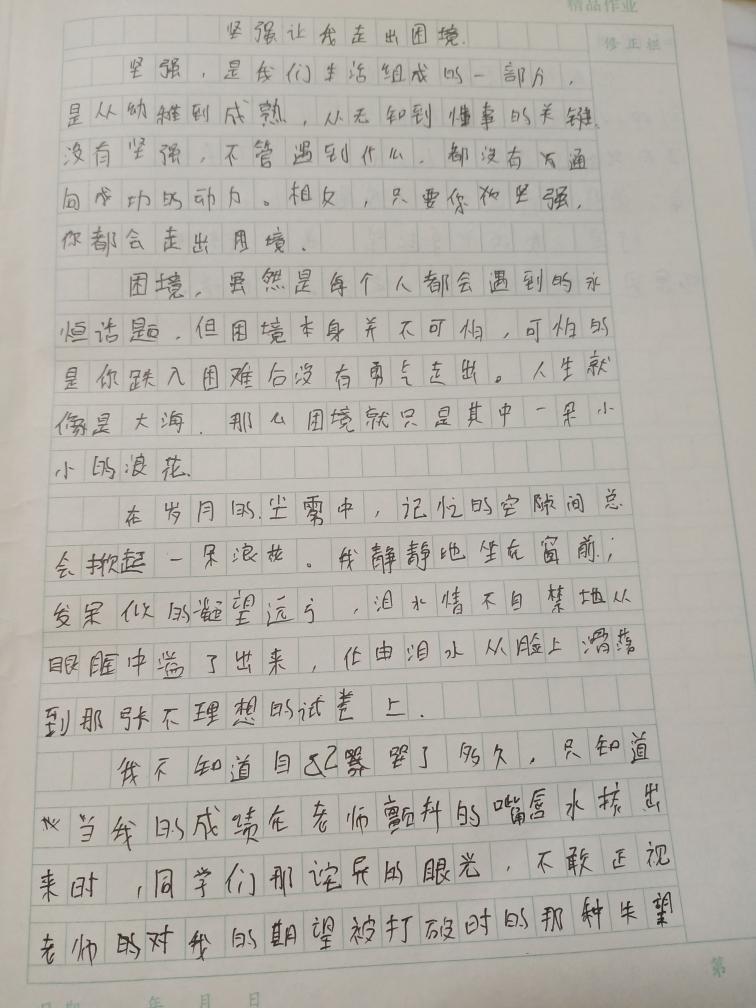 精品作业
修正栏
坚强让我走出困境.
坚强，是我们生活组成的一部分，
是从幼稚到成熟，从无知到懂事的关键.
没有坚强，不管遇到什么，都没有通
向成功的动力。相反，只要你坚强，
你都会走出困境.
困境，虽然是每个人都会遇到的永
恒话题，但困境本身并不可怕，可怕的
是你跌入困难后没有勇气走出。人生就
像是大海.那么困境就只是其中一朵小
小的浪花.
在岁月的尘雾中，记忆的空隙间总
会掀起一朵浪花。我静静地坐在窗前；
发呆似的凝望远方，泪水情不自禁地从
眼眶中溢了出来，任由泪水从脸上滑落
到那张不理想的试卷上.
我不知道自己哭了多久，只知道
当我的成绩在老师颤抖的嘴唇出
来时，同学们那诧异的眼光，不敢正视
老师的对我的期望被打破时的那种失望
第
日期 年 月 日